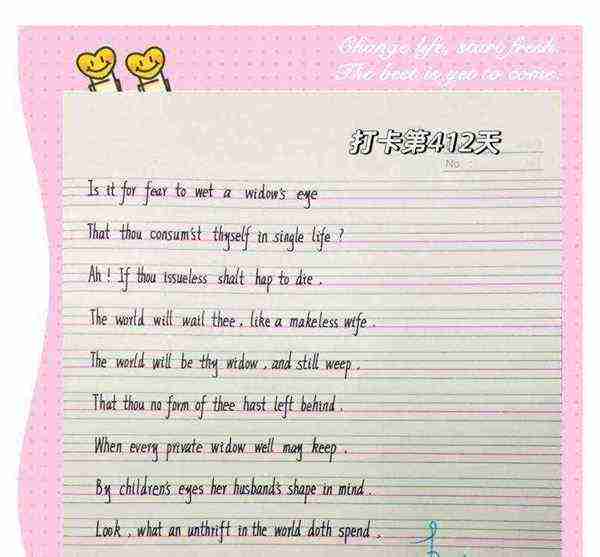 Change life, start fresh.
The best is yet to come.
打卡第412天
No
Is it for fear to wet a widow's eye
That thou consum'st thyself in single life ?
Ah ! If thou issueless shalt hap to die .
The world will wail thee , like a makeless wife .
The world will be thy widow , and still weep .
That thou no form of thee hast left behind .
When every private widow well may keep .
By children's eyes her husband's shape in mind .
Look , what an unthrift in the world doth spend .